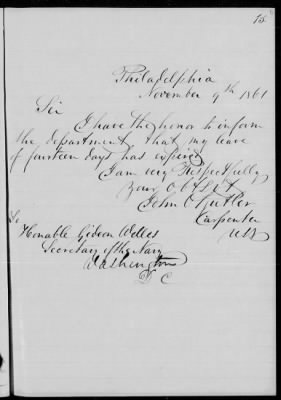 75
Philadelphia
November 9th 1861
Sir
I have the honor to inform
the department that my leave
of fourteen days has expired
I am very Respectfully
Your Obt Svt
John O Butler
Carpenter
USN
To
Honable Gideon Welles
Secretary of the Navy
Washington
D C